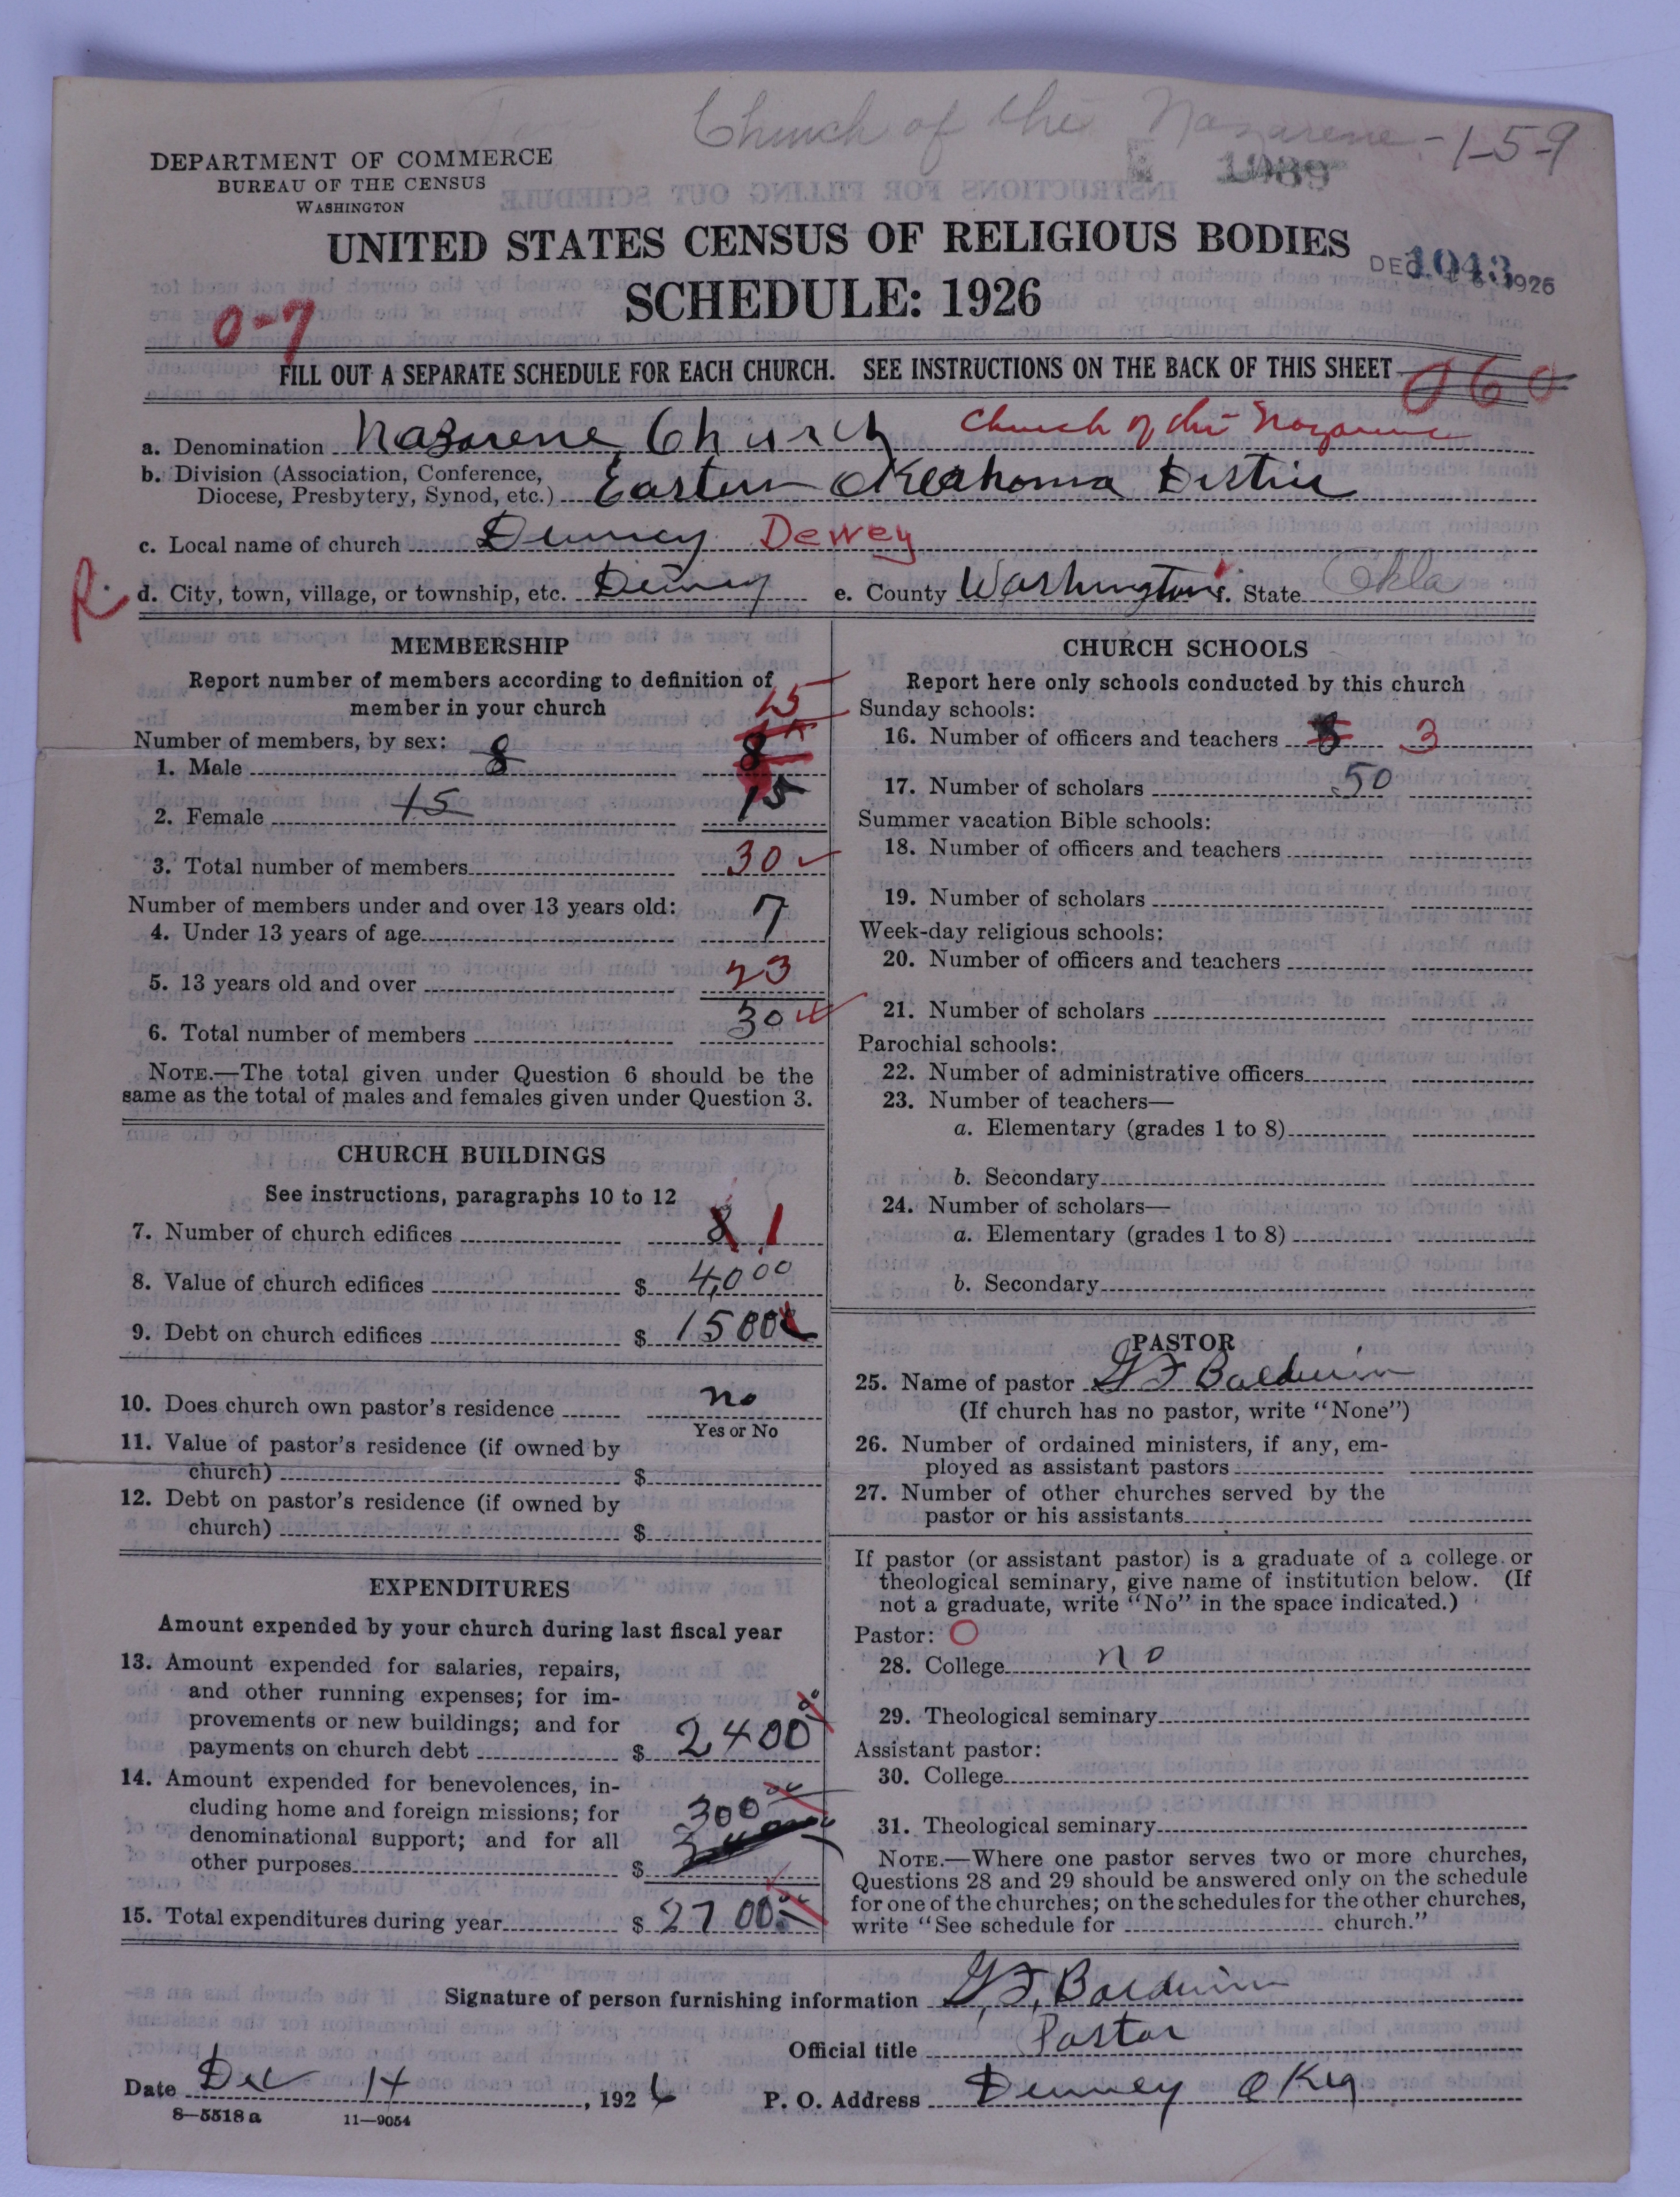 Church of the Nazarene - 1-5-9
DEPARTMENT OF COMMERCE
BUREAU OF THE CENSUS
WASHINGTON
1089
UNITED STATES CENSUS OF RELIGIOUS BODIES
SCHEDULE: 1926
DEC 1926
1043
0-7
FILL OUT A SEPARATE SCHEDULE FOR EACH CHURCH. SEE INSTRUCTIONS ON THE BACK OF THIS SHEET
060
a. Denomination Nazarene Church Church of the Nazarene
b. Division (Association, Conference,
Diocese, Presbytery, Synod, etc.) Eastern Oklahoma
c. Local name of church Dewey
R. d. City, town, village, or township, etc. e. County Washington f. State Okla
MEMBERSHIP
Report number of members according to definition of
member in your church
15
Number of members, by sex:
1. Male 8 8
2. Female 15 15
3. Total number of members 30
Number of members under and over 13 years old:
4. Under 13 years of age 7
5. 13 years old and over 23
6. Total number of members 30
NOTE.—The total given under Question 6 should be the
same as the total of males and females given under Question 3.
CHURCH BUILDINGS
See instructions, paragraphs 10 to 12
7. Number of church edifices 1
8. Value of church edifices $ 4,000
9. Debt on church edifices $ 1500
10. Does church own pastor's residence no
Yes or No
11. Value of pastor's residence (if owned by
church) $
12. Debt on pastor's residence (if owned by
church) $
EXPENDITURES
Amount expended by your church during last fiscal year
13. Amount expended for salaries, repairs,
and other running expenses; for im-
provements or new buildings; and for
payments on church debt $ 2400
14. Amount expended for benevolences, in-
cluding home and foreign missions; for
denominational support; and for all
other purposes $ 300
15. Total expenditures during year $ 2700
CHURCH SCHOOLS
Report here only schools conducted by this church
Sunday schools:
16. Number of officers and teachers 3
17. Number of scholars 50
Summer vacation Bible schools:
18. Number of officers and teachers
19. Number of scholars
Week-day religious schools:
20. Number of officers and teachers
21. Number of scholars
Parochial schools:
22. Number of administrative officers
23. Number of teachers—
a. Elementary (grades 1 to 8)
b. Secondary
24. Number of scholars—
a. Elementary (grades 1 to 8)
b. Secondary
PASTOR
25. Name of pastor G F Baldwin
(If church has no pastor, write "None")
26. Number of ordained ministers, if any, em-
ployed as assistant pastors
27. Number of other churches served by the
pastor or his assistants
If pastor (or assistant pastor) is a graduate of a college or
theological seminary, give name of institution below. (If
not a graduate, write "No" in the space indicated.)
Pastor: O
28. College no
29. Theological seminary
Assistant pastor:
30. College
31. Theological seminary
NOTE.—Where one pastor serves two or more churches,
Questions 28 and 29 should be answered only on the schedule
for one of the churches; on the schedules for the other churches,
write "See schedule for church."
Signature of person furnishing information G. F. Baldwin
Official title Pastor
Date Dec 14, 1926 P. O. Address Dewey Okla
8—5518a 11—9054